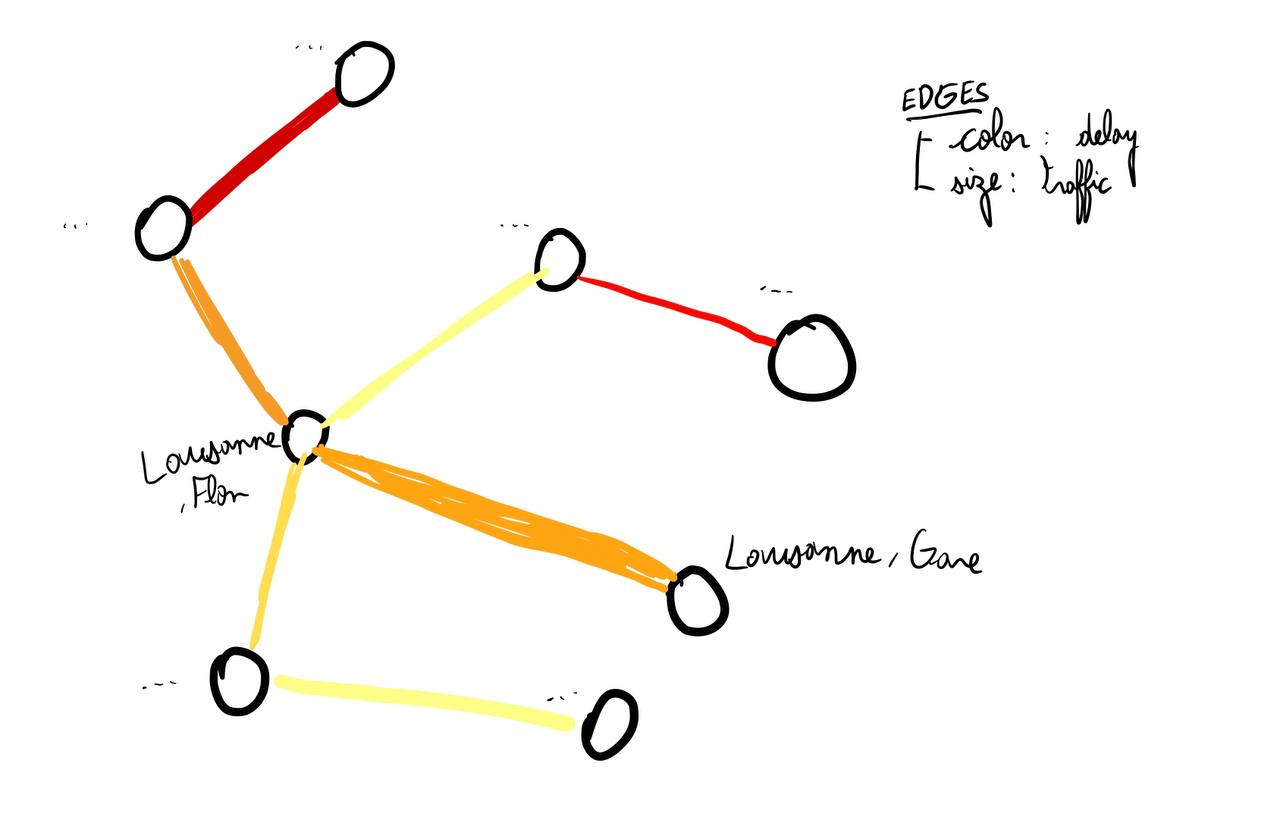 ...
EDGES
color : delay
size : traffic
...
...
...
Lausanne
, Flon
Lausanne, Gare
...
...